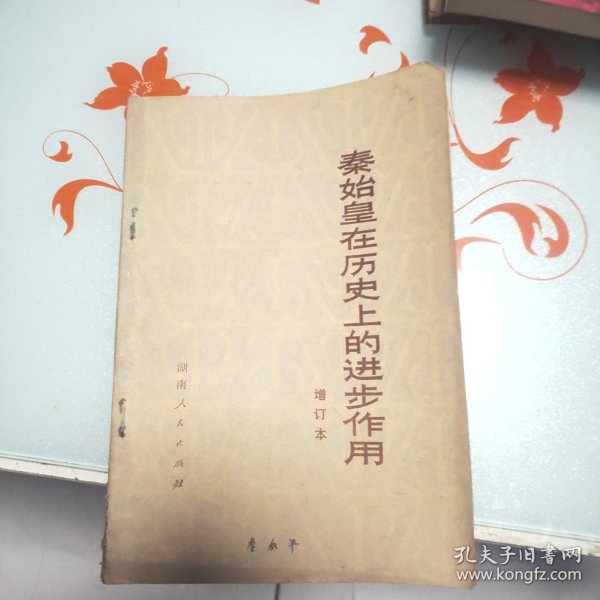 秦始皇在历史上的进步作用
增订本
湖南人民出版社
孔夫子旧书网
www.kongfz.com